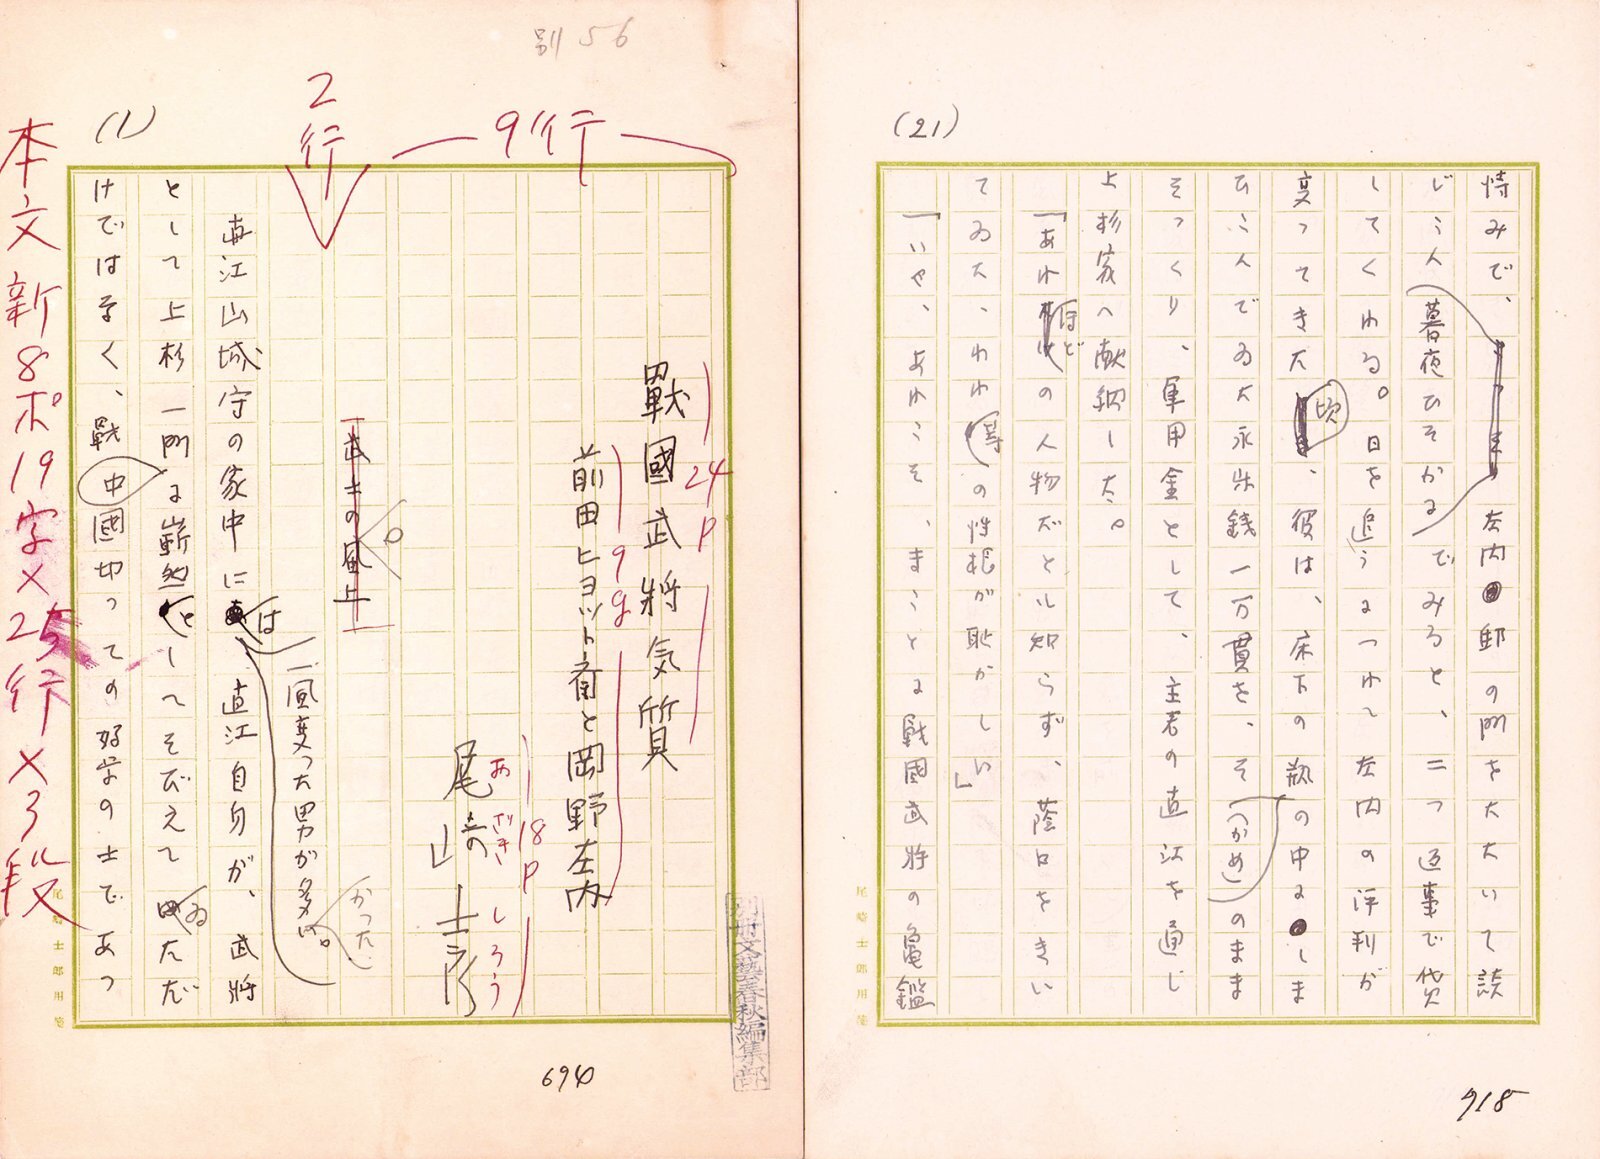 別56
2行
9行
(1)
戰國武将気質
24p
前田ヒョット斎と岡野左内
9g
尾崎士郎
おざきしろう
18p
武士の風上
直江山城守の家中には一風変った男が多かった。直江自身が、武將
として上杉一門に嶄然としてそびえてゐただ
けではなく、戰國中切っての好学の士であっ
本文新8ポ19字×25行×3段
尾崎士郎用箋
別冊文藝春秋編集部
694
(21)
恃みで、左内邸の門をたたいて談
じこん
暮夜ひそかに
でみると、二つ返事で貸
してくれる。日を追うにつれて左内の評判が
変ってきた頃、彼は、床下の瓶の中にしま
ひこんでゐた永楽銭一万貫を、そ(かめ)のまま
そっくり、軍用金として、主君の直江を通じ
上杉家へ献納した。
「あれほどの人物だとは知らず、蔭口をきい
てゐた、われ等の性根が恥かしい」
「いや、あれこそ、まことに戰國武将の亀鑑
尾崎士郎用箋
918